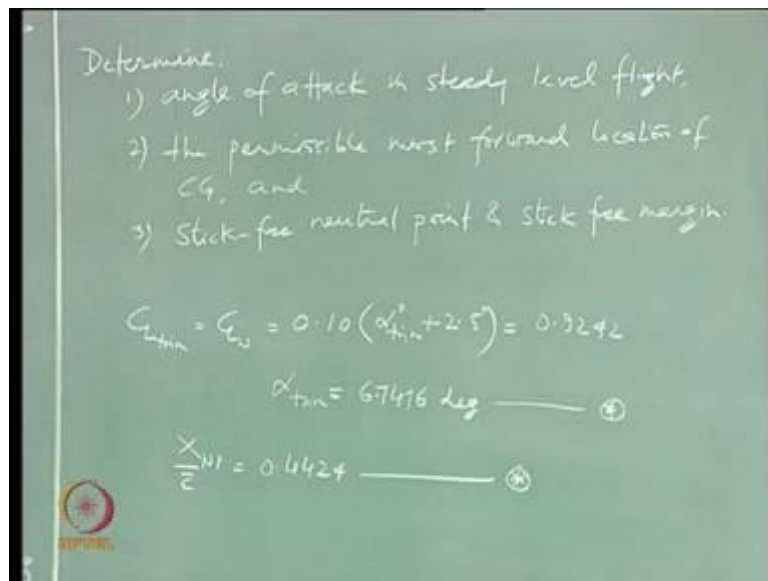 Determine.
1) angle of attack in steady level flight,
2) the permissible most forward location of
CG, and
3) Stick-free neutral point & stick free margin.
C_Ltrim = C_Lw = 0.10 (α°_trim + 2.5°) = 0.9242
α_trim = 6.7416 deg ——— *
X/c̄ NP = 0.4424 ——— *